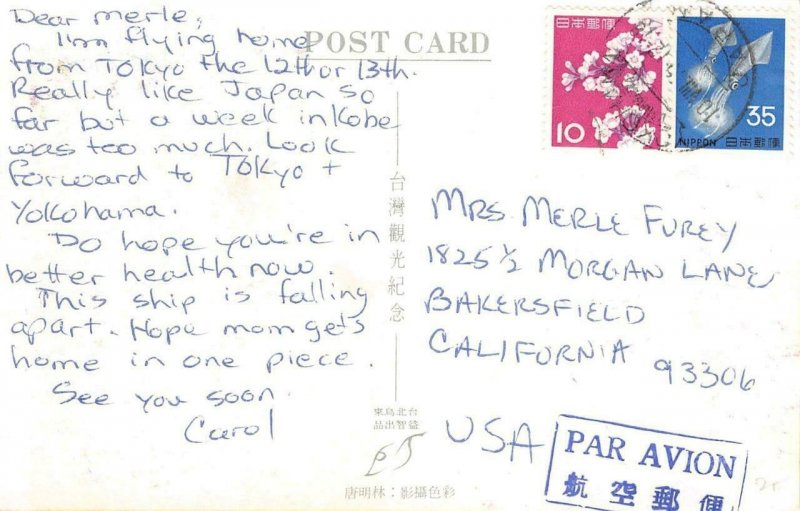 Dear Merle,
I'm flying home
from TOKYO the 12th or 13th.
Really like Japan so
far but a week in Kobe
was too much. Look
forward to TOKYO +
Yokohama.
Do hope you're in
better health now.
This ship is falling
apart. Hope mom gets
home in one piece.
See you soon.
Carol
POST CARD
台灣觀光紀念
東烏北台
品出智益
唐明林：影攝色彩
日本郵便
10
35
NIPPON 日本郵便
MRS MERLE FUREY
1825 1/2 MORGAN LANE
BAKERSFIELD
CALIFORNIA 93306
USA
PAR AVION
航空郵便